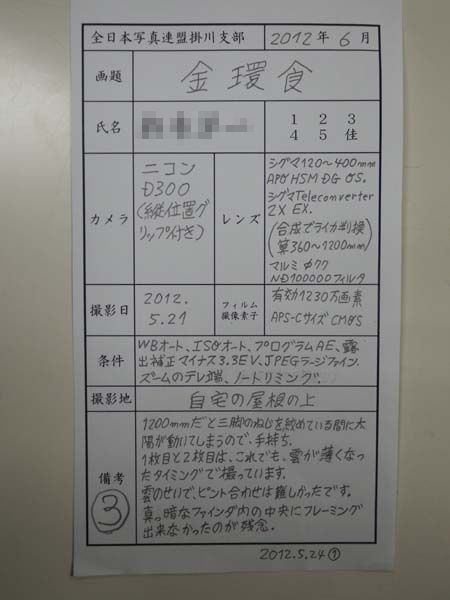 全日本写真連盟掛川支部 2012年6月
画題 金環食
氏名
1 2 3
4 5 佳
カメラ
ニコン
D300
(縦位置グ
リップ付き)
レンズ
シグマ120〜400mm
APO HSM DG OS.
シグマTeleconverter
2X EX.
(合成でライカ判換
算360〜1200mm)
マルミ φ77
ND100000フィルタ
撮影日
2012.
5.21
フィルム
撮像素子
有効1230万画素
APS-Cサイズ CMOS
条件
WBオート、ISOオート、プログラムAE、露
出補正マイナス3.3EV、JPEGラージファイン.
ズームのテレ端、ノートリミング.
撮影地 自宅の屋根の上
備考
③
1200mmだと三脚のねじを絞めている間に太
陽が動いてしまうので、手持ち.
1枚目と2枚目は、これでも、雲が薄くなっ
たタイミングで撮っています.
雲のせいで、ピント合わせは難しかったです.
真っ暗なファインダ内の中央にフレーミング
出来なかったのが残念.
2012.5.24①